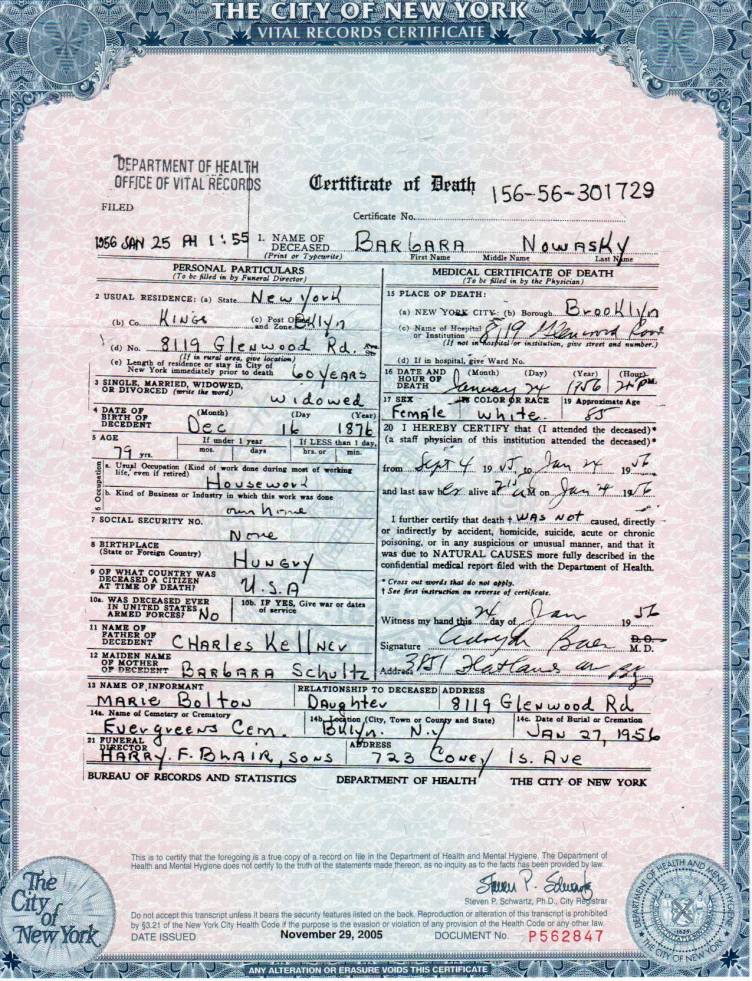 THE CITY OF NEW YORK
VITAL RECORDS CERTIFICATE
DEPARTMENT OF HEALTH
OFFICE OF VITAL RECORDS
Certificate of Death 156-56-301729
FILED
Certificate No.
1956 JAN 25 PM 1:55
1. NAME OF DECEASED (Print or Typewrite) BARBARA NOWASKY
First Name Middle Name Last Name
PERSONAL PARTICULARS
(To be filled in by Funeral Director)
2 USUAL RESIDENCE: (a) State New York
(b) Co. KINGS (c) Post Office and Zone Bklyn
(d) No. 8119 Glenwood Rd.
(If in rural area, give location)
(e) Length of residence or stay in City of New York immediately prior to death 60 YEARS
3 SINGLE, MARRIED, WIDOWED, OR DIVORCED (write the word) Widowed
4 DATE OF BIRTH OF DECEDENT (Month) (Day (Year)
Dec 16 1876
5 AGE 79 yrs. If under 1 year mos. days If LESS than 1 day, hrs. or min.
6 Occupation
a. Usual Occupation (Kind of work done during most of working life, even if retired)
Housework
b. Kind of Business or Industry in which this work was done
own home
7 SOCIAL SECURITY NO. None
8 BIRTHPLACE (State or Foreign Country) HUNGRY
9 OF WHAT COUNTRY WAS DECEASED A CITIZEN AT TIME OF DEATH? U.S.A
10a. WAS DECEASED EVER IN UNITED STATES ARMED FORCES? No
10b. IF YES, Give war or dates of service
11 NAME OF FATHER OF DECEDENT CHARLES Kellner
12 MAIDEN NAME OF MOTHER OF DECEDENT BARBARA Schultz
MEDICAL CERTIFICATE OF DEATH
(To be filled in by the Physician)
15 PLACE OF DEATH:
(a) NEW YORK CITY: (b) Borough Brooklyn
(c) Name of Hospital or Institution 8119 Glenwood Road
(If not in hospital or institution, give street and number.)
(d) If in hospital, give Ward No.
16 DATE AND HOUR OF DEATH (Month) (Day) (Year) (Hour)
January 24 1956 PM
17 SEX Female 18 COLOR OR RACE White 19 Approximate Age 85
20 I HEREBY CERTIFY that (I attended the deceased)*
(a staff physician of this institution attended the deceased)*
from Sept 4 19 55, to Jan 24 1956
and last saw her alive at M on Jan 1956
I further certify that death † WAS NOT caused, directly
or indirectly by accident, homicide, suicide, acute or chronic
poisoning, or in any suspicious or unusual manner, and that it
was due to NATURAL CAUSES more fully described in the
confidential medical report filed with the Department of Health.
* Cross out words that do not apply.
† See first instruction on reverse of certificate.
Witness my hand this 24 day of Jan 1956
Signature D.O. M.D.
Address
13 NAME OF INFORMANT RELATIONSHIP TO DECEASED ADDRESS
MARIE Bolton Daughter 8119 Glenwood Rd
14a. Name of Cemetery or Crematory 14b. Location (City, Town or County and State) 14c. Date of Burial or Cremation
Evergreens Cem. Bklyn. N.Y JAN 27, 1956
21 FUNERAL DIRECTOR ADDRESS
HARRY. F. BLAIR, SONS 723 CONEY Is. Ave
BUREAU OF RECORDS AND STATISTICS DEPARTMENT OF HEALTH THE CITY OF NEW YORK
This is to certify that the foregoing is a true copy of a record on file in the Department of Health and Mental Hygiene. The Department of
Health and Mental Hygiene does not certify to the truth of the statements made thereon, as no inquiry as to the facts has been provided by law.
Steven P. Schwartz
Steven P. Schwartz, Ph.D., City Registrar
Do not accept this transcript unless it bears the security features listed on the back. Reproduction or alteration of this transcript is prohibited
by §3.21 of the New York City Health Code if the purpose is the evasion or violation of any provision of the Health Code or any other law.
DATE ISSUED November 29, 2005 DOCUMENT No. P562847
The City of New York
HEALTH AND MENTAL HYGIENE
THE CITY OF NEW YORK
ANY ALTERATION OR ERASURE VOIDS THIS CERTIFICATE